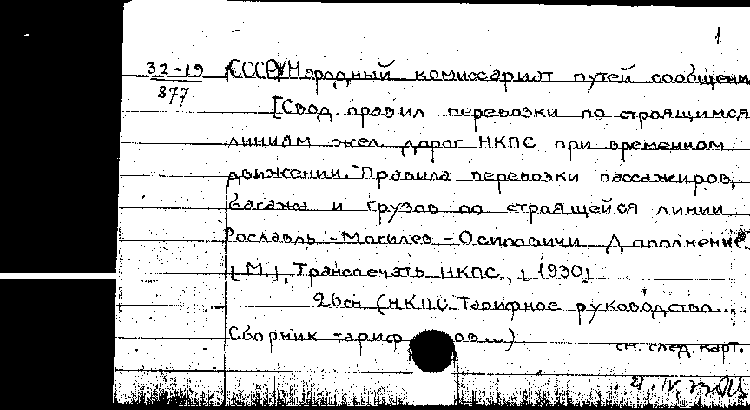 1
32-19
877
СССР. Народный комиссариат путей сообщени
[Свод правил перевозки по строящимся
линиям жел. дорог НКПС при временном
движении. Правила перевозки пассажиров,
багажа и грузов по строящейся линии
Рославль-Могилев-Осиповичи. Дополнение
[М.], Транспечать НКПС, [1930]
(НКПС. Тарифное руководство...
Сборник тариф ов...)
см. след. карт.